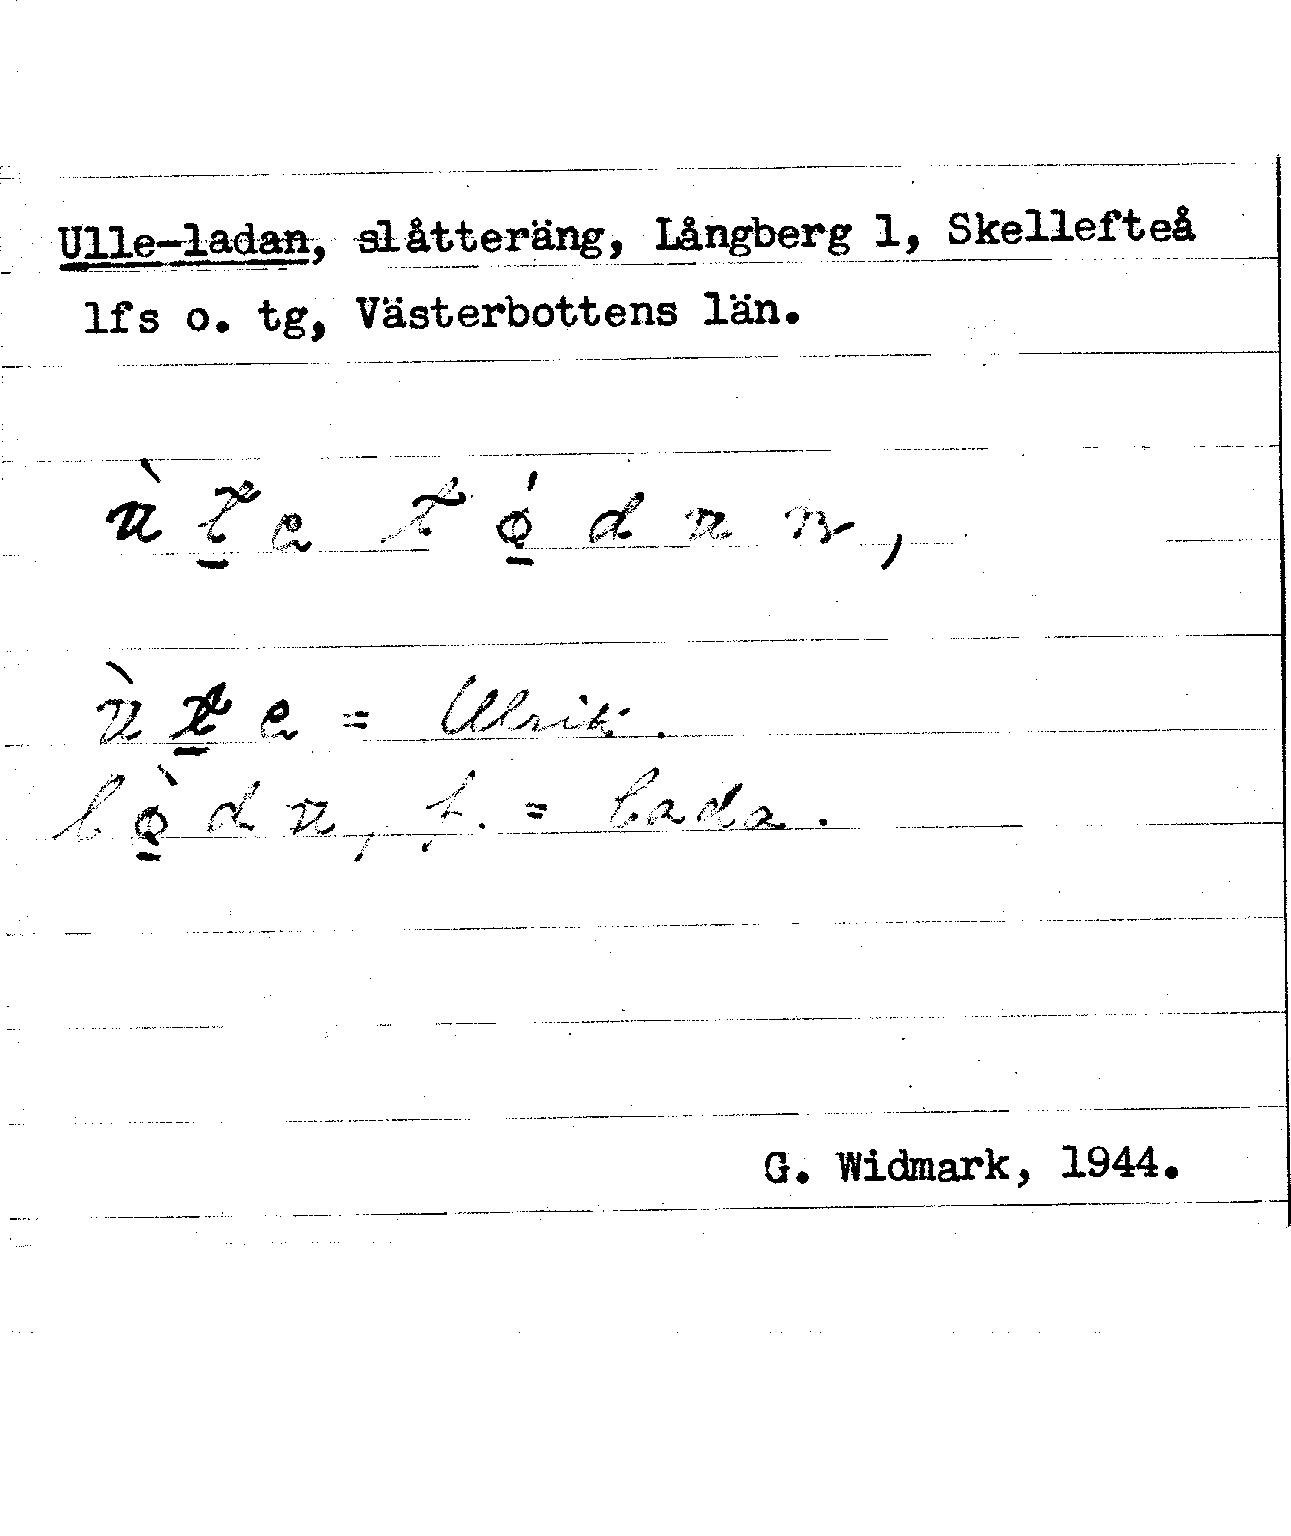 Ulle-ladan, slåtteräng, Långberg 1, Skellefteå
lfs o. tg, Västerbottens län.
= Ulrik.
f. = lada.
G. Widmark, 1944.